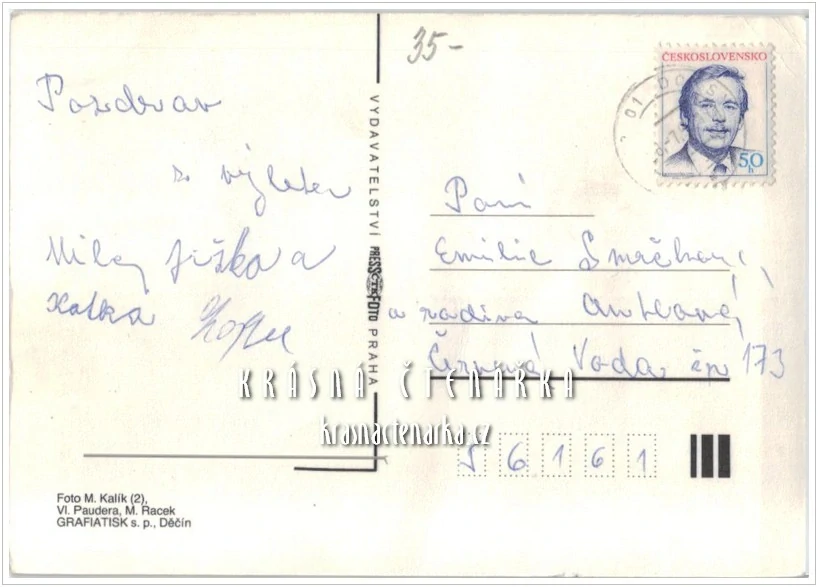 35-
Pozdrav
z výletu
Milej Jiška a
Katka
VYDAVATELSTVÍ PRESSFOTO PRAHA
ČESKOSLOVENSKO
50
h
01
Paní
Emilie Smrčkoní
a rodina
Černá Voda čp 173
56161
KRÁSNÁ ČTENÁŘKA
krasnactenarka.cz
Foto M. Kalík (2),
Vl. Paudera, M. Racek
GRAFIATISK s. p., Děčín